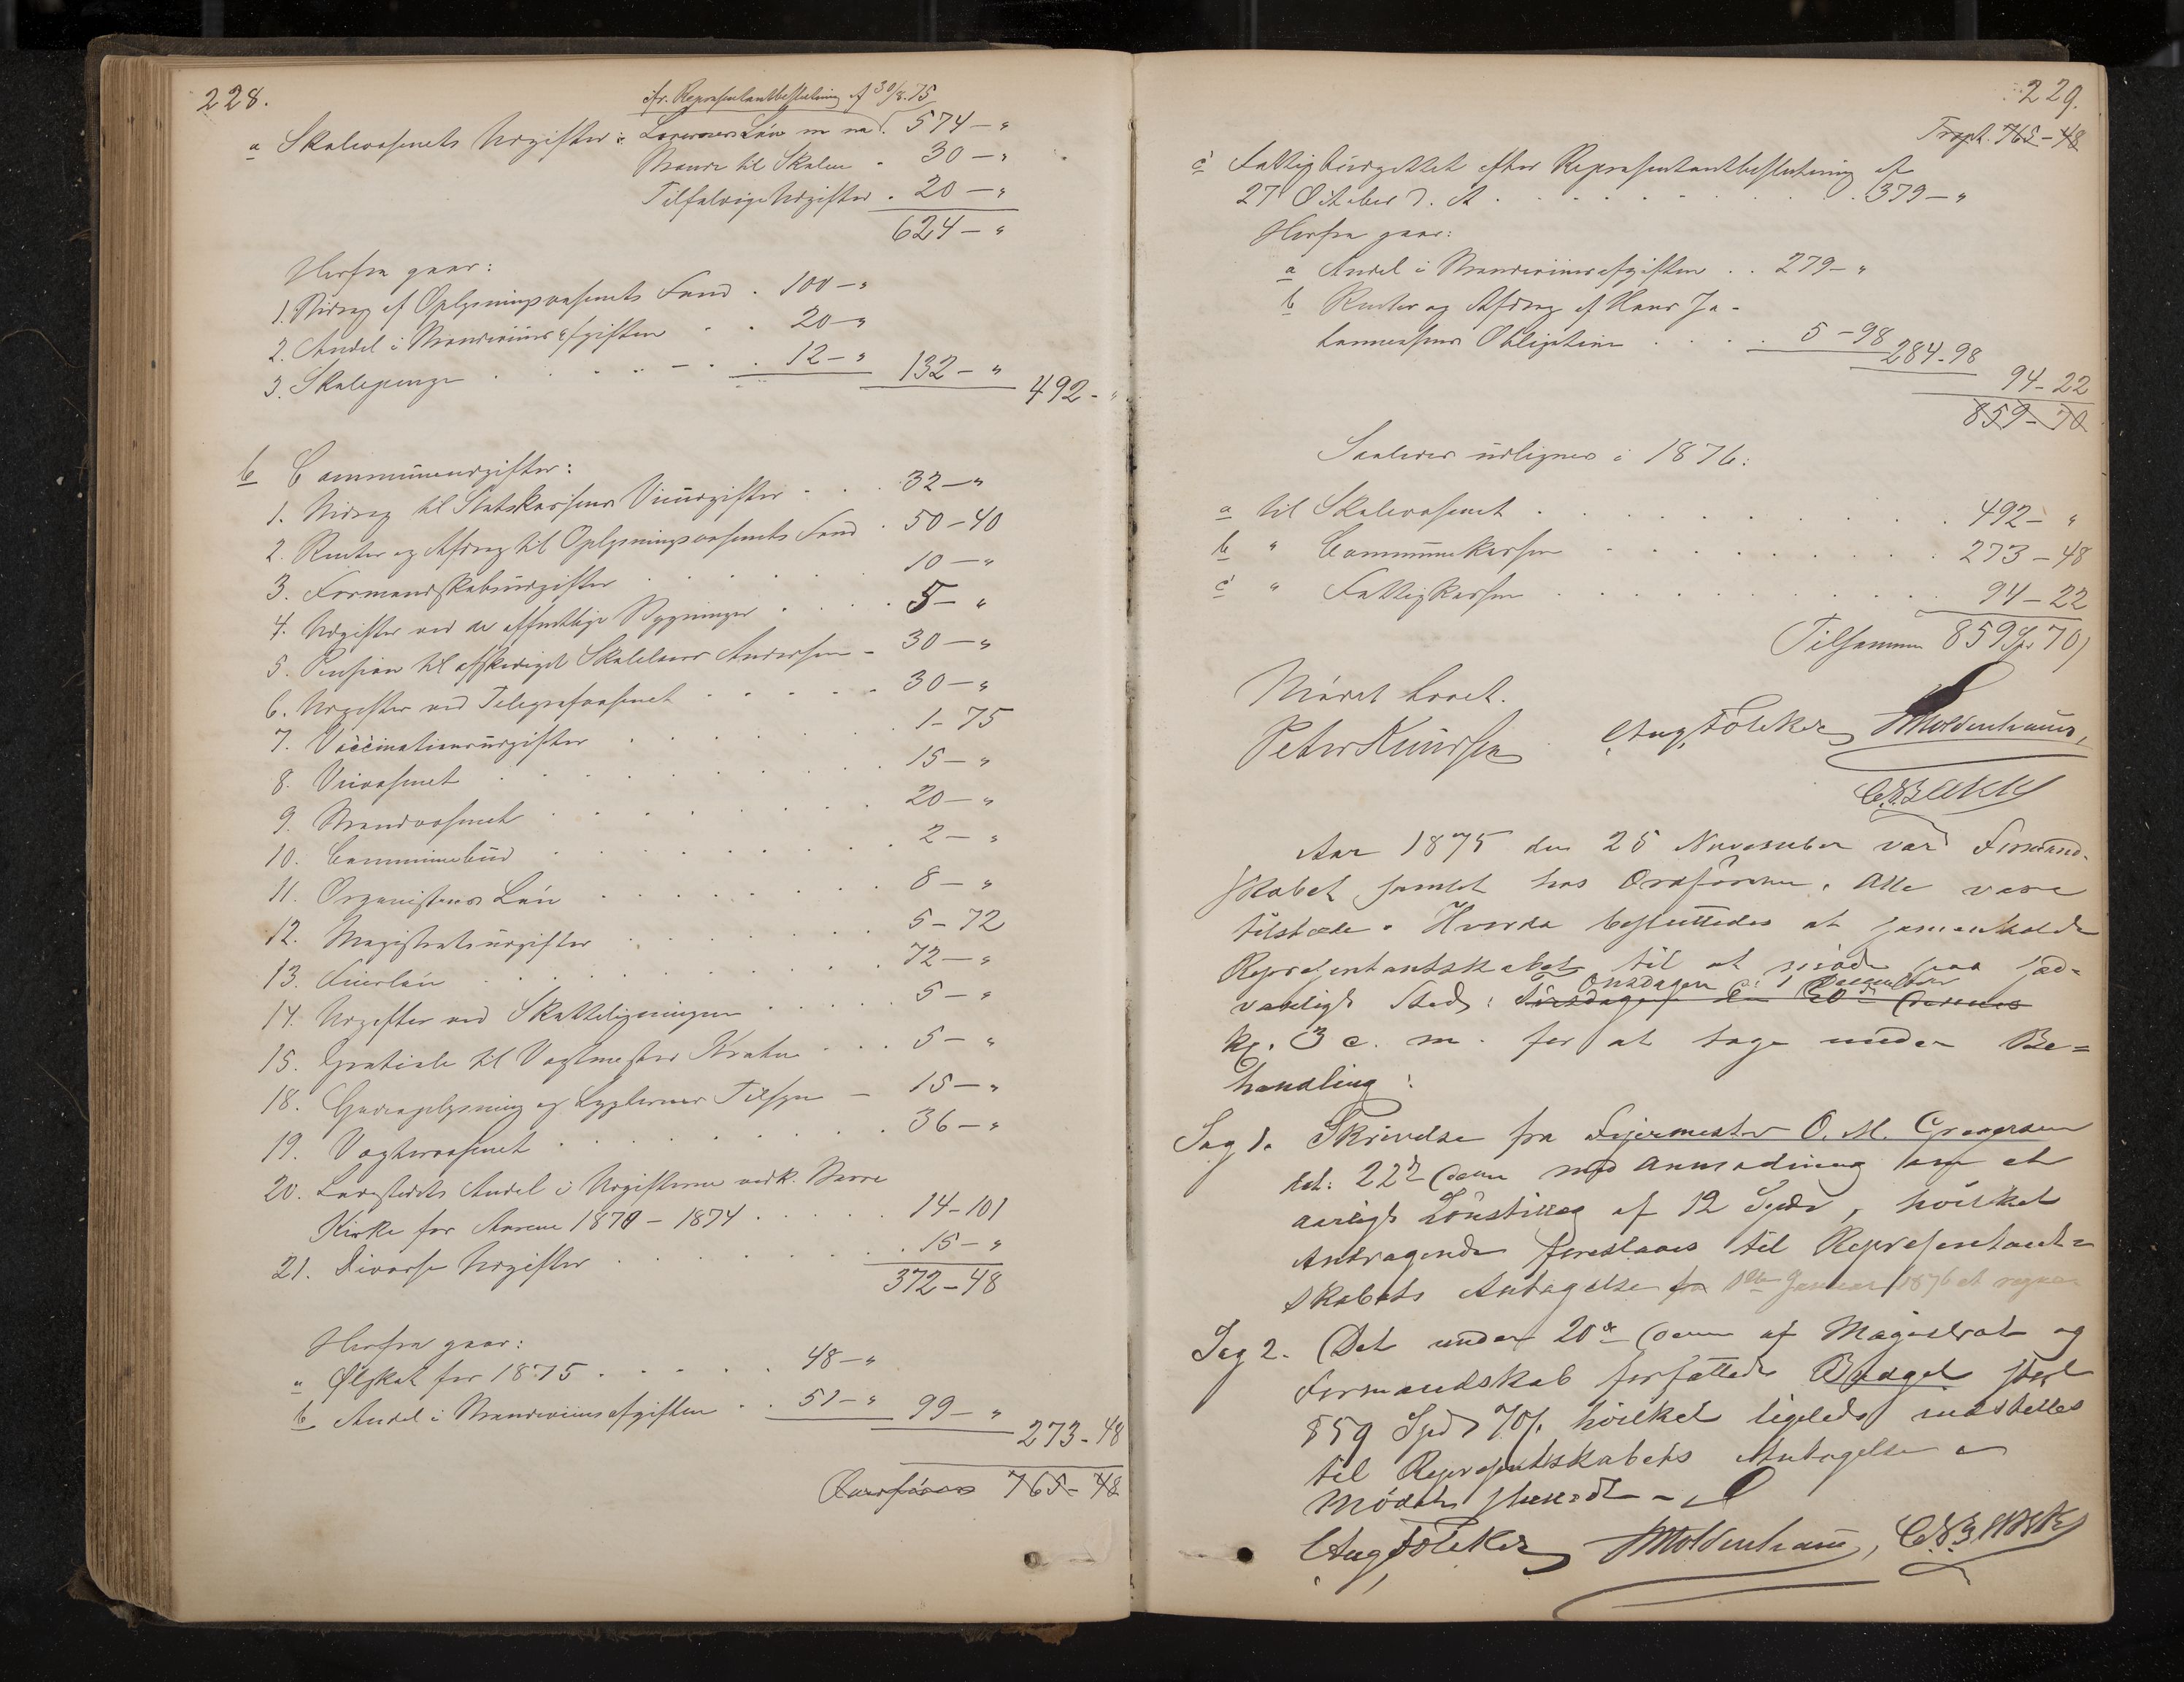 228.
cfr. Repræsentantbeslutning af 30/8.75
a Skolevæsenets Udgifter: Lærernes Løn m m. 574 — "
Brænde til Skolen . 30 — "
Tilfældige Udgifter . 20 — "
624 — "
Herfra gaar:
1. Bidrag af Oplysningsvæsenets Fond . 100 — "
2. Andel i Brændeviinsafgiften . . 20 — "
3. Skolepenge . . . . . 12 — " 132 — " 492 - "
b Communeudgifter:
1. Bidrag til Statskassens Udgifter . . . 32 — "
2. Renter og Afdrag til Oplysningsvæsenets Fond . 50 - 40
3. Formandskabsudgifter 10 — "
4. Udgifter ved de offentlige Bygninger . . . . 5 — "
5. Pension til afskediget Skolelærer Andersen - 30 — "
6. Udgifter ved Telegrafvæsenet . . . . . 30 — "
7. Vaccinationsudgifter . . . . . 1 - 75
8. Veivæsenet . . . . . . 15 — "
9. Brandvæsenet . . . . . . 20 — "
10. Communebud . . . . . . 2 — "
11. Organistens Løn . . . . . . 8 — "
12. Magistratsudgifter . . . . . 5 - 72
13. Feierløn . . . . . . 72 — "
14. Udgifter ved Skatteligningen . . . . . 5 — "
15. Gratiale til Vagtmester . . . 5 — "
18. Gadeoplysning og Lygternes Tilsyn — 15 — "
19. Vægtervæsenet . . . . . . 36 — "
20. Ladestedets Andel i Udgifterne vedk.
Kirke for Aarene 1870 - 1874 . . . . . 14 - 101
21. Diverse Udgifter . . . . . 15 — "
372 - 48
Herfra gaar:
a Ølskat for 1875 . . . . . 48 — "
b Andel i Brændeviinsafgiften . . 51 — " 99 — "
273 - 48
Overføres 765 - 48
229.
Trspt. 765 - 48
c Fattigbudgettet efter Repræsentantbeslutning af
27 October d. A . . . . . . . . 379 — "
Herfra gaar:
a Andel i Brændeviinsafgiften . . 279 - "
b Renter og Afdrag af Hans Jo-
hannesens Obligation . . . . 5 - 98 284 - 98
94 - 22
859 - 70
Saaledes udlignes i 1876:
a til Skolevæsenet . . . . . . . . 492 - "
b " Communekassen . . . . . . . 273 - 48
c " Fattigkassen . . . . . . . . 94 - 22
Tilsammen 859 Spd 70 ß
Mødet hævet.
Peter Knudsen Aug Fölcker Moldenhauer,
Aar 1875 den 25 November var Formand-
skabet samlet hos Ordføreren. Alle vare
tilstede. Hvorda besluttedes at sammenkalde
Repræsentantskabet til at møde paa sæd-
Onsdagen d: 1 December
vanligt Sted: Tirsdagen den 30 dennes
kl. 3 e. m. for at tage under Be=
handling:
Sag 1. Skrivelse fra Feiermester O. M. Gregersen
dat: 22de dennes med Anmodning om et
aarligt Lønstillæg af 12 Spdr, hvilket
Andragende foreslaaes til Repræsentant=
skabets Antagelse fra 1ste Januar 1876 at regne
Sag 2. Det under 20de dennes af Magistrat og
Formandskab forfattede Budget stort
859 Spd 70 ß hvilket ligeledes indstilles
til Repræsentskabets Antagelse
Mødet sluttedt
Aug Fölcker Moldenhauer,